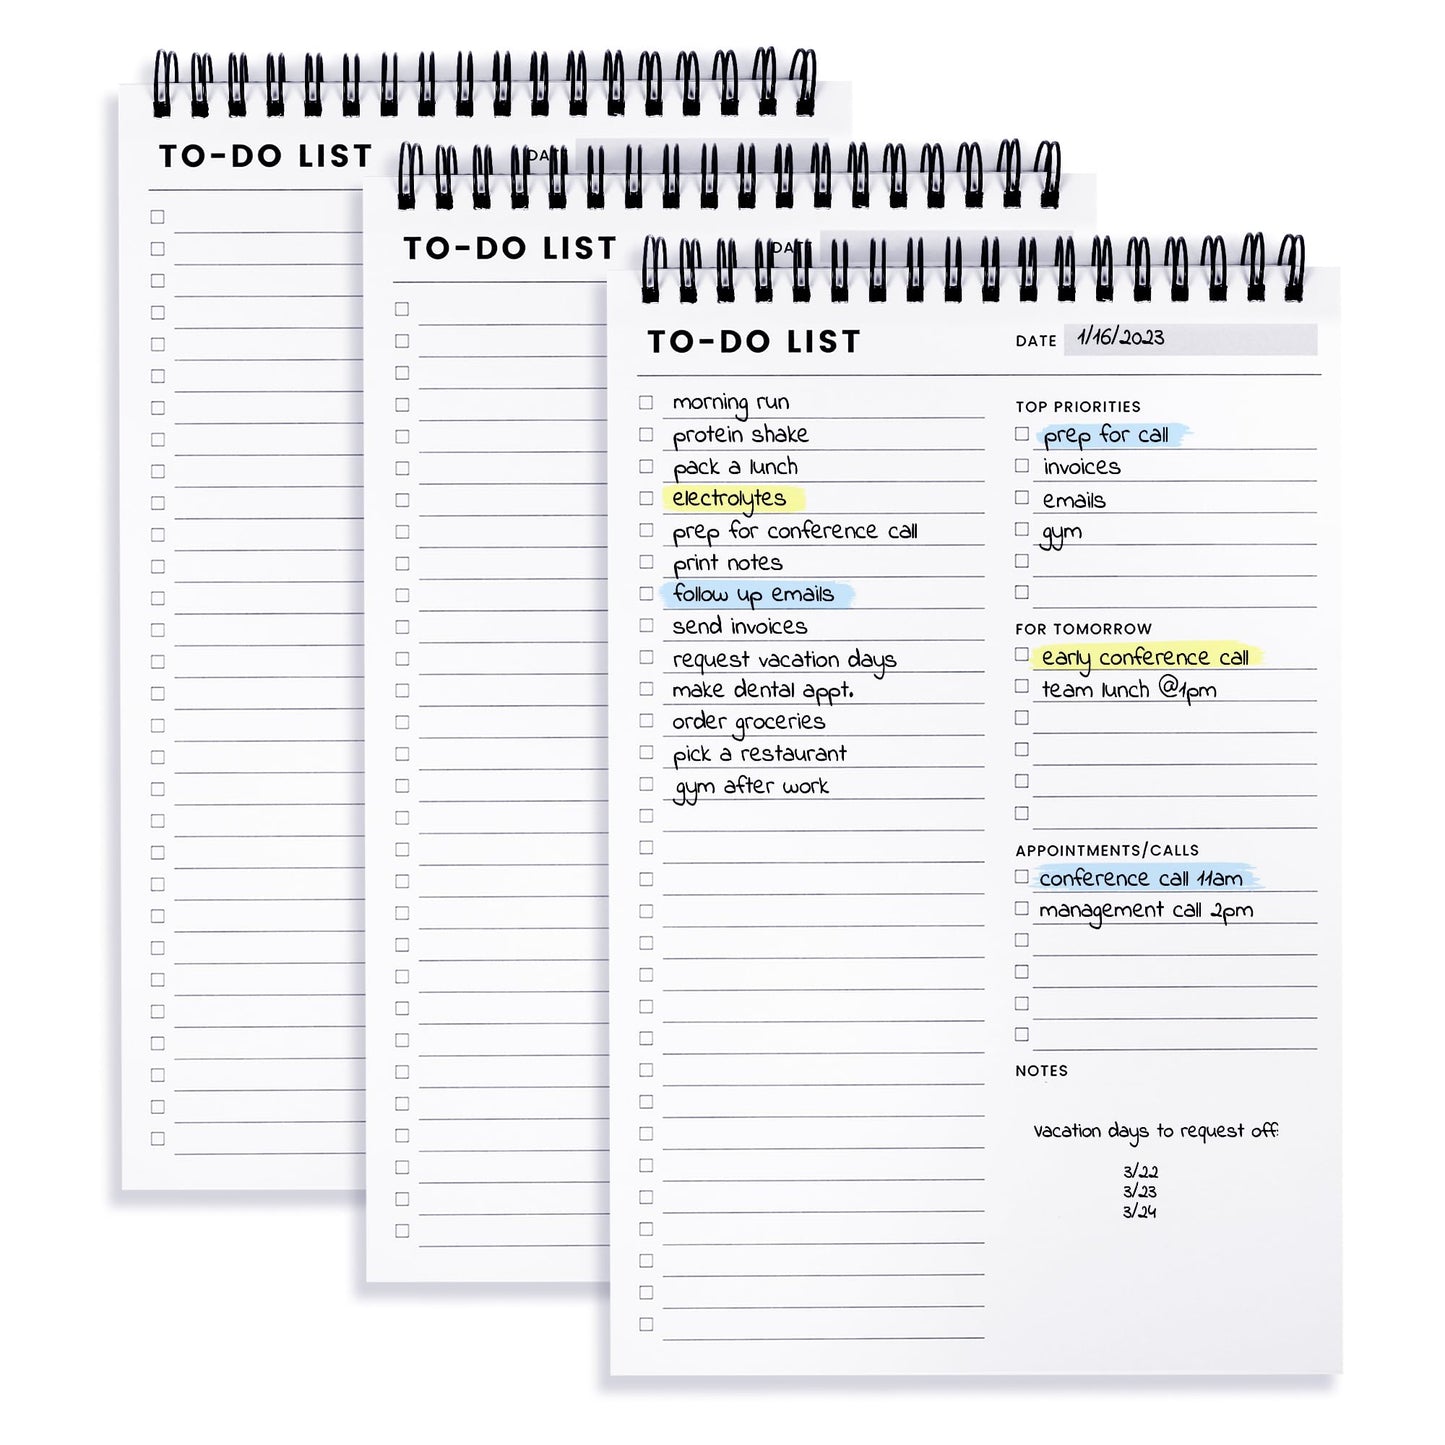 TO-DO LIST
TO-DO LIST
TO-DO LIST
DATE 1/16/2023
morning run
protein shake
pack a lunch
electrolytes
prep for conference call
print notes
follow up emails
send invoices
request vacation days
make dental appt.
order groceries
pick a restaurant
gym after work
TOP PRIORITIES
prep for call
invoices
emails
gym
FOR TOMORROW
early conference call
team lunch @1pm
APPOINTMENTS/CALLS
conference call 11am
management call 2pm
NOTES
Vacation days to request off:
3/22
3/23
3/24